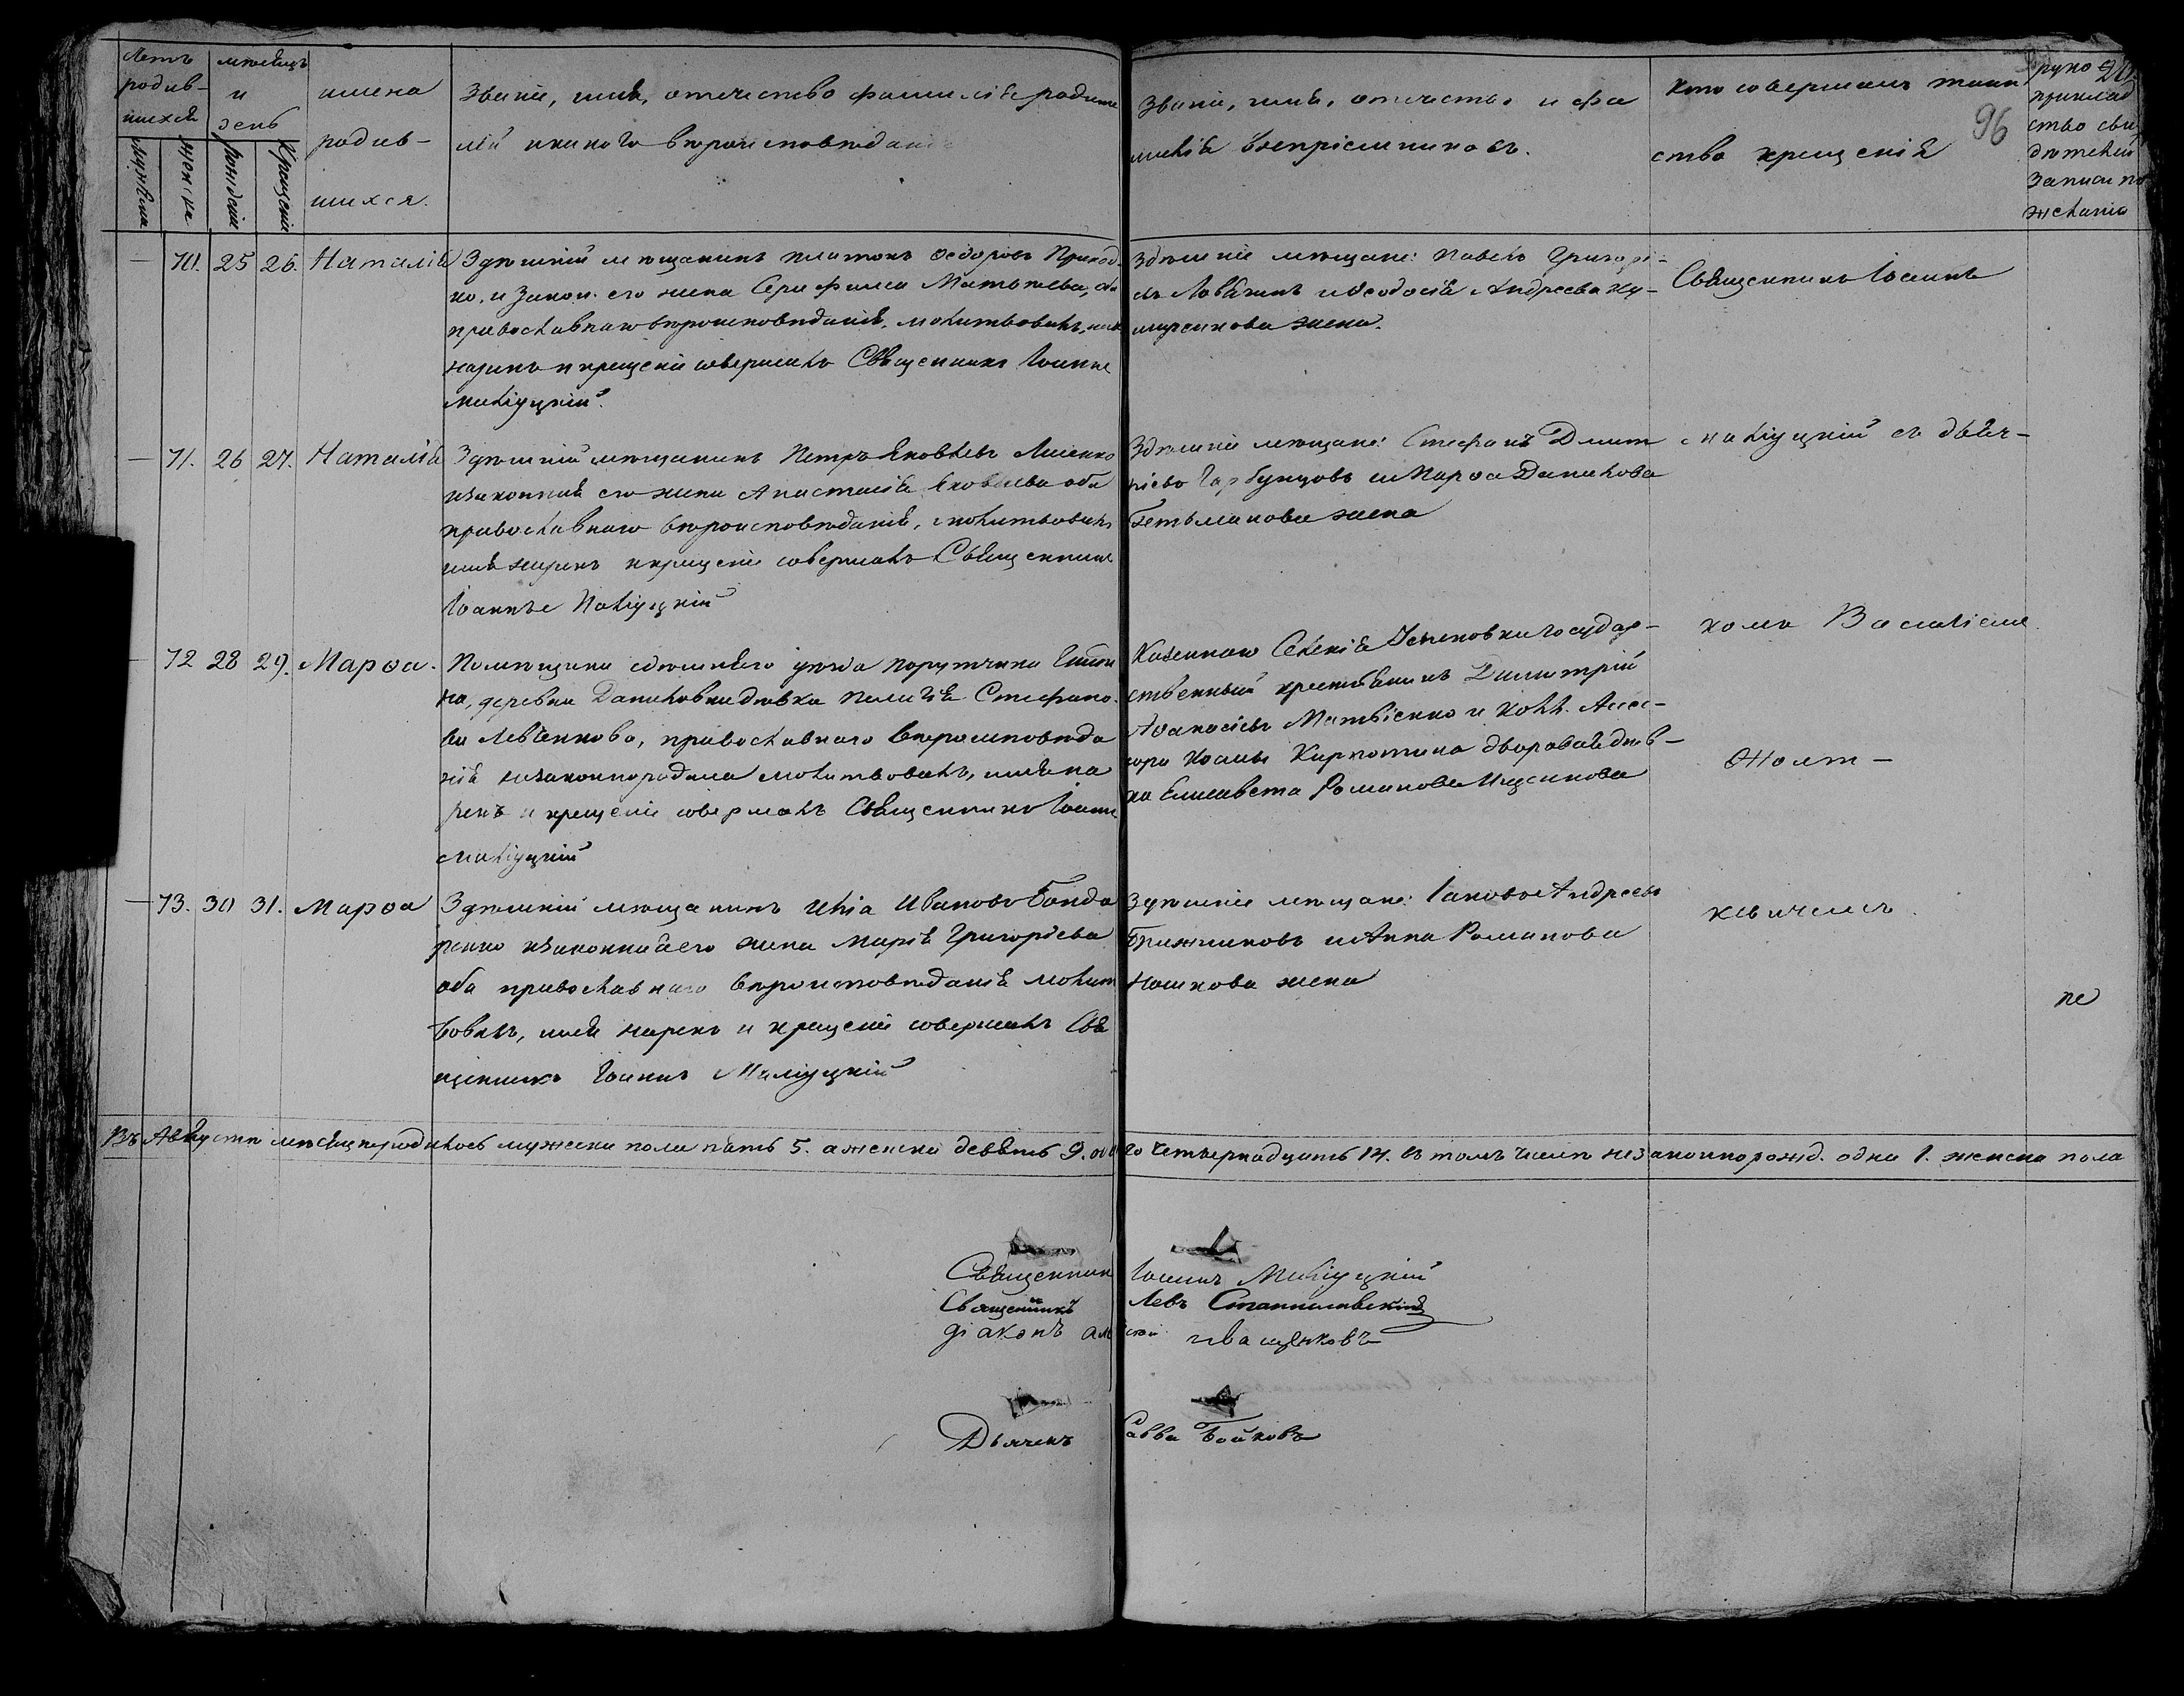 Летъ родив-
шихся
мужеска
женска
мѣсяцъ
и
день
рожденія
крещенія
имена
родив-
шихся.
Званіе, имя, отечество фамилія родите
лей и какого вѣроисповѣданія
Званіе, имя, отечество и фа
милія воспріемниковъ.
Кто совершалъ таин
ство крещенія
96
руко
приклад
ство сви
дѣтелей
записи по
желанію
— 70. 25 26. Наталія
Здѣшній мѣщанинъ Платонъ Ѳедоровъ Приход-
ко, и закон. его жена Серафима Матвѣева, оба
православнаго вѣроисповѣданія, молитвовалъ,
нарекъ и крещеніе совершалъ Священникъ Іоаннъ
Маліуцкій.
Здѣшніе мѣщане: Павелъ Григорі-
евъ и Ѳеодосія Андреева
жена.
Священникъ Іоаннъ
— 71. 26 27. Наталія
Здѣшній мѣщанинъ Петръ Яковлевъ Лисенко
и законная его жена Анастасія Яковлева оба
православнаго вѣроисповѣданія, молитвовалъ
имя нарекъ и крещеніе совершалъ Священникъ
Іоаннъ Маліуцкій
Здѣшніе мѣщане: Стефанъ Дмит
ріевъ Гарбунцовъ и Марѳа Данилова
Гетьманова жена
Маліуцкій съ дьяч-
— 72 28 29. Марѳа.
Помѣщика здѣшняго уѣзда поручика
деревни Даниловки дѣвка Пелагія Стефано-
ва Левченкова, православнаго вѣроисповѣда
нія незаконнородила молитвовалъ, имя на
рекъ и крещеніе совершалъ Священникъ Іоаннъ
Маліуцкій
Казеннаго Селенія Государ-
ственный крестьянинъ Димитрій
Аѳанасіевъ Матвіенко и Колл. Ассе-
сора Космы Кирпотина дворовая дѣв-
ка Елисавета Романова Ищенкова
комъ Василіемъ
Жолт-
— 73. 30 31. Марѳа
Здѣшній мѣщанинъ Илія Ивановъ Бонда
ренко и законная его жена Марія Григоріева
оба православнаго вѣроисповѣданія молит
вовалъ, имя нарекъ и крещеніе совершалъ Свя
щенникъ Іоаннъ Маліуцкій
Здѣшніе мѣщане: Іаковъ Андреевъ
и Анна Романова
жена
кевичемъ.
не
Въ Августѣ мѣсяцѣ родилось мужеска пола пять 5. а женска девять 9. обоего четырнадцать 14. въ томъ числѣ незаконнорожд. одна 1. женска пола
Священникъ Іоаннъ Маліуцкій
Священникъ Левъ Станиславскій
діаконъ Иващенковъ
Дьячекъ Савва Бойковъ